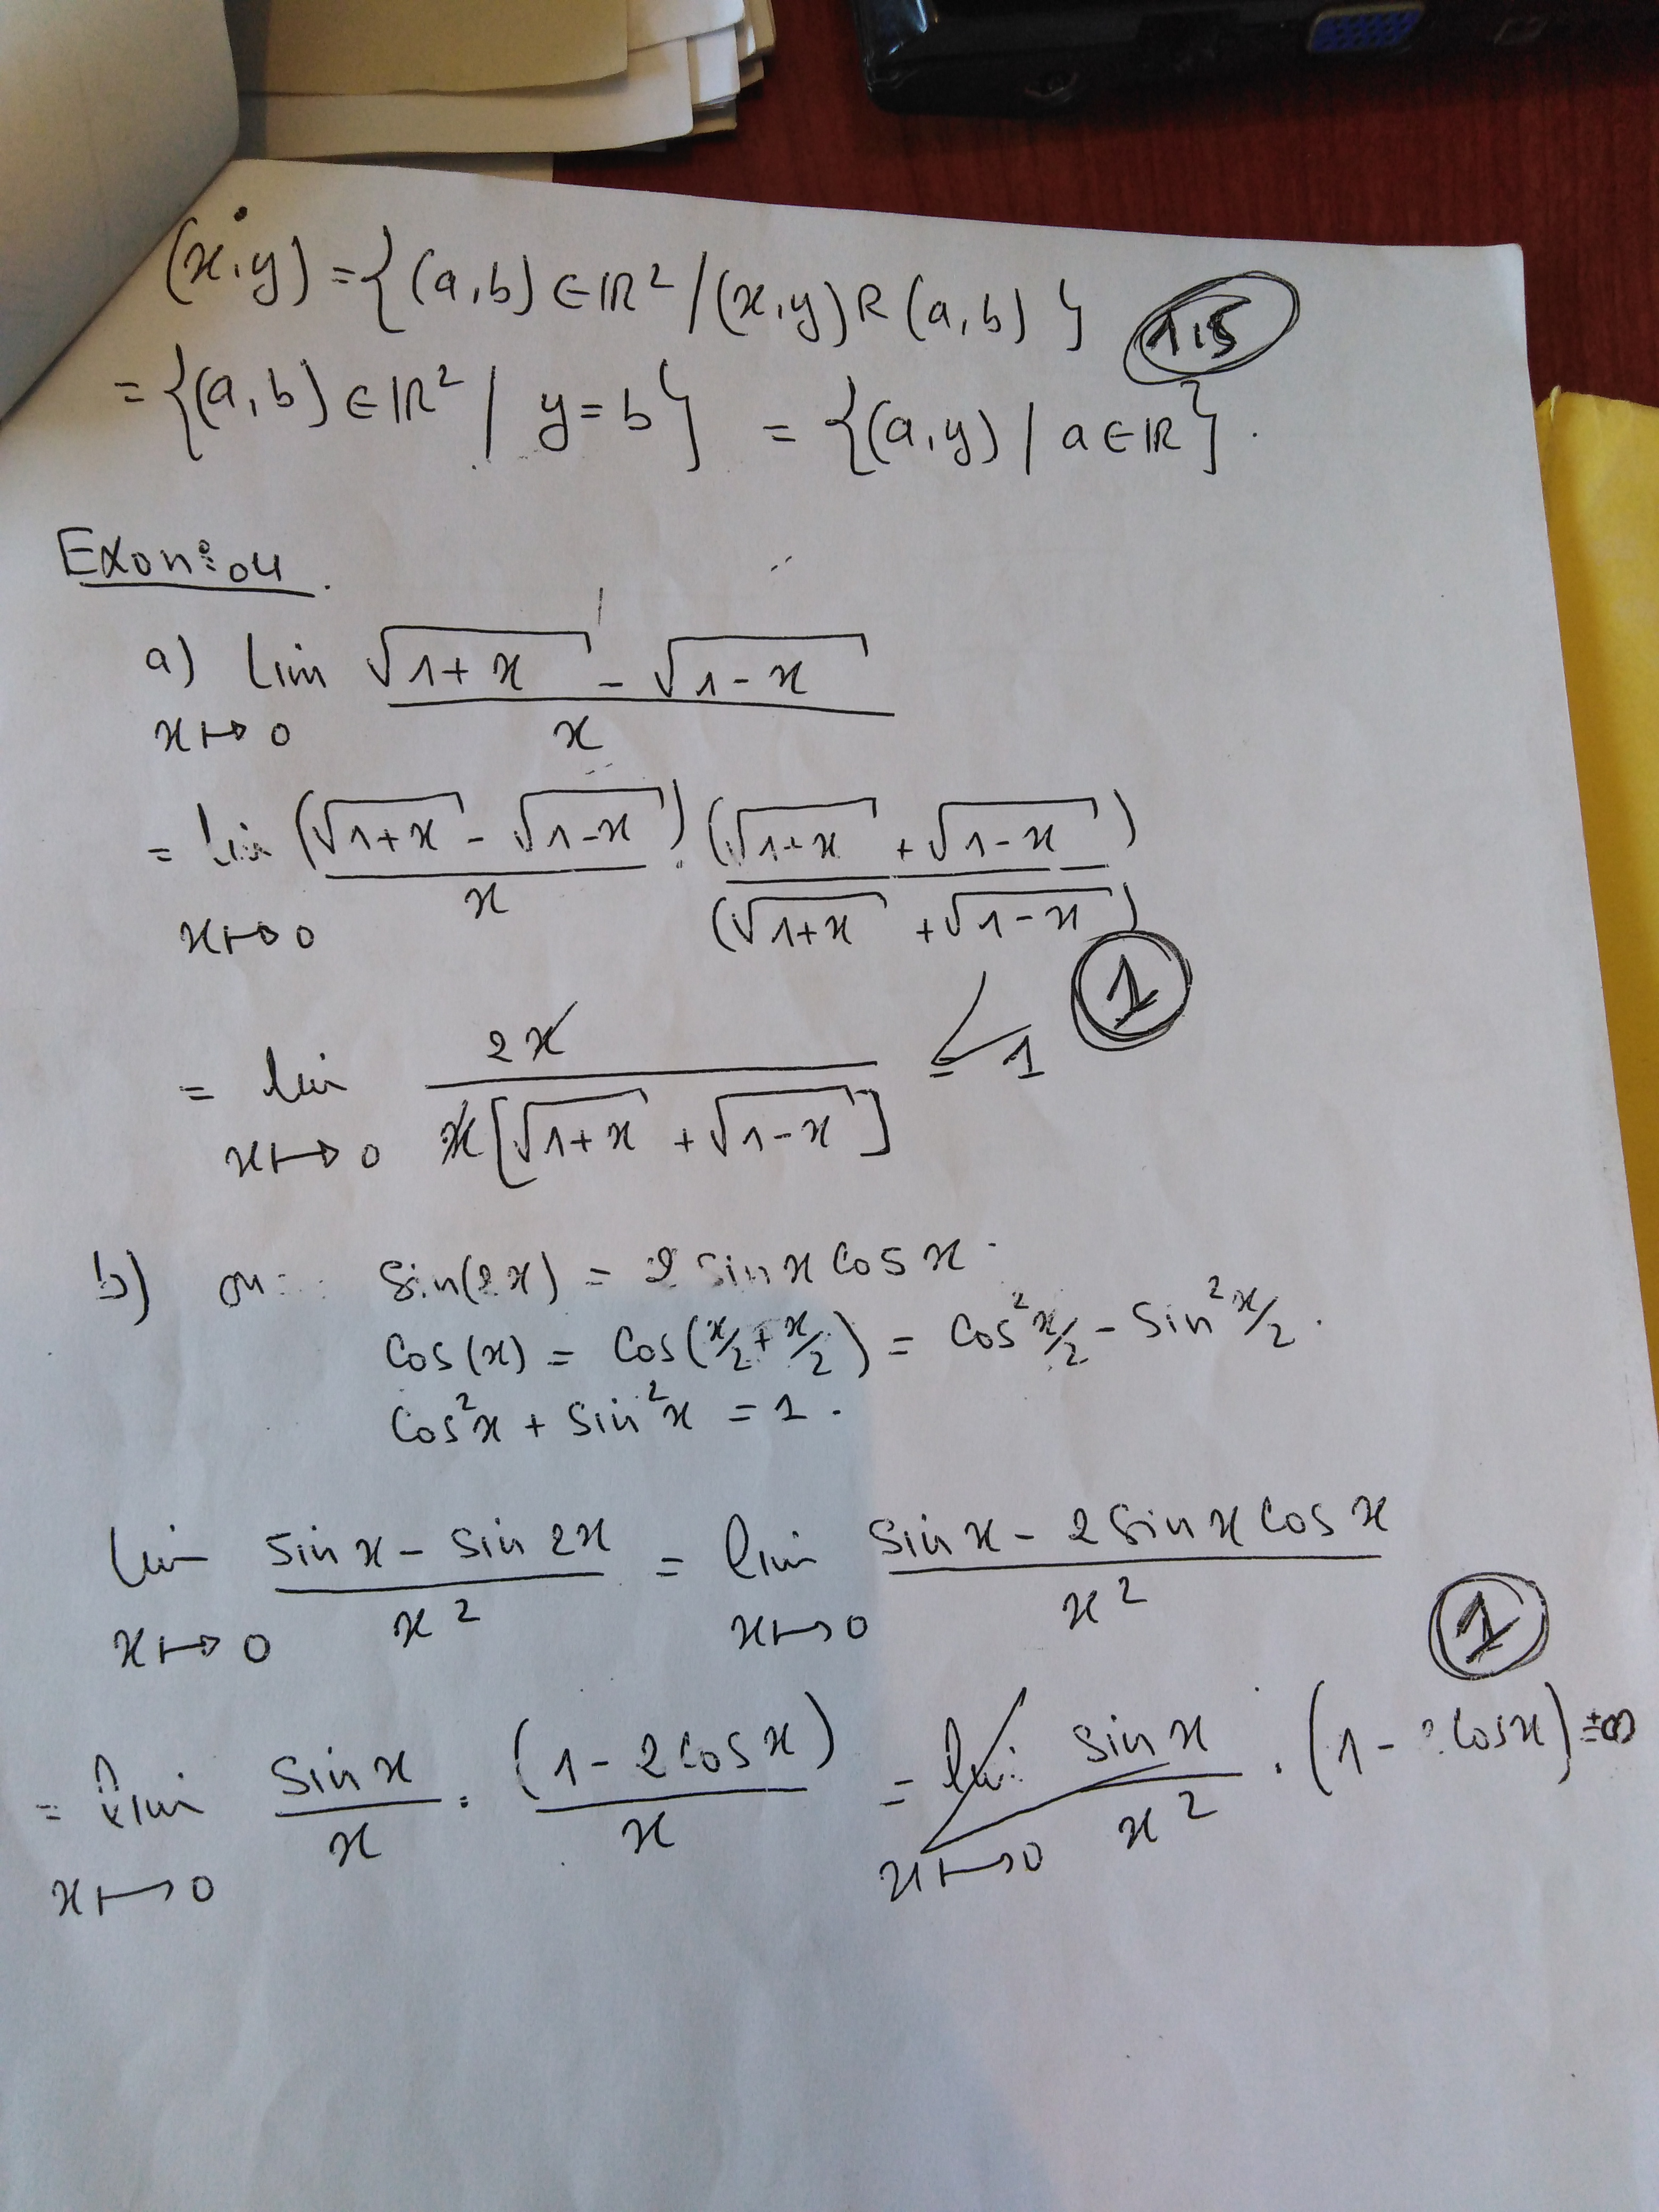 (x,y) = {(a,b) ∈ ℝ² / (x,y) R (a,b)} 1,5
= {(a,b) ∈ ℝ² / y = b} = {(a,y) / a ∈ ℝ}.
Exon: 04
a) lim_{x↦0} (√(1+x) - √(1-x)) / x
= lim_{x↦0} (√(1+x) - √(1-x)) / x . (√(1+x) + √(1-x)) / (√(1+x) + √(1-x))
= lim_{x↦0} 2x / x[√(1+x) + √(1-x)] = 1 1
b) on: sin(2x) = 2 sin x cos x.
cos(x) = cos(x/2 + x/2) = cos² x/2 - sin² x/2.
cos²x + sin²x = 1.
lim_{x↦0} (sin x - sin 2x) / x² = lim_{x↦0} (sin x - 2 sin x cos x) / x² 1
= lim_{x↦0} sin x / x . (1 - 2 cos x) / x = lim_{x↦0} sin x / x² . (1 - 2 cos x) = ±∞